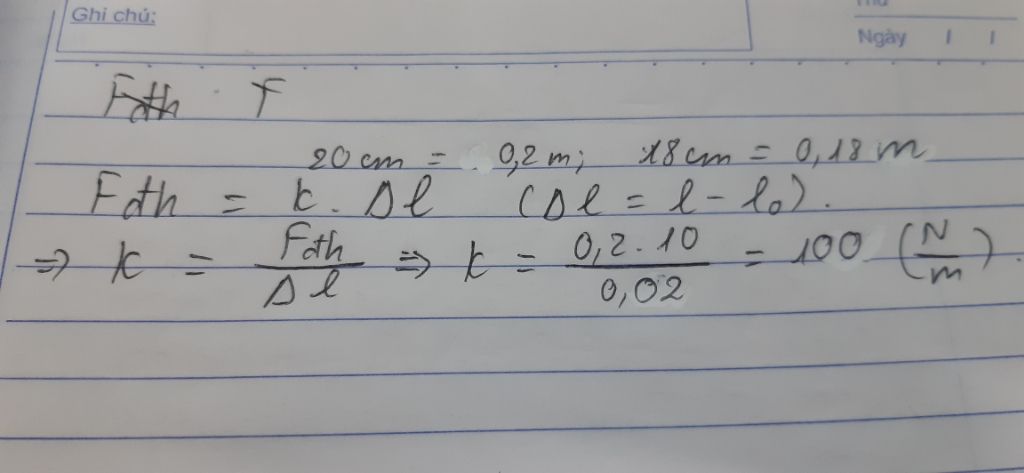 Ghi chú:
Thứ
Ngày / /
Fđh . F
20 cm = 0,2 m; 18 cm = 0,18 m
Fđh = k. Δl (Δl = l - l₀).
⇒ k = Fđh / Δl ⇒ k = 0,2 . 10 / 0,02 = 100 (N/m).